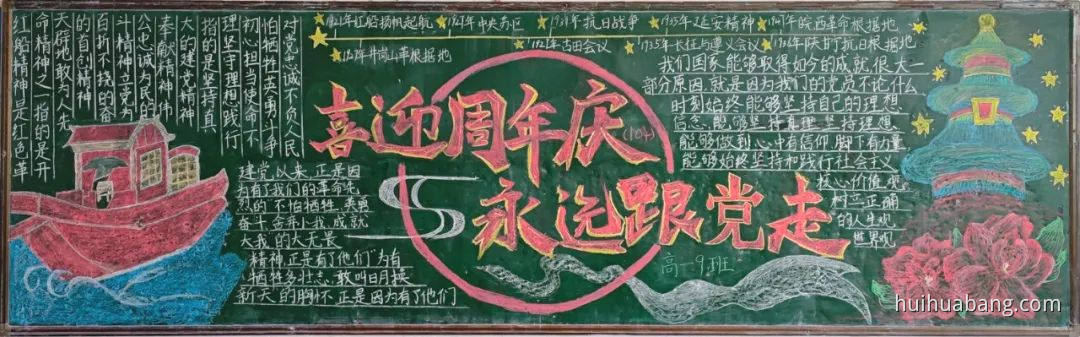 ★1921年红船扬帆起航★1927年中央苏区★1931年抗日战争★1935年延安精神★1947年皖西革命根据地
★1927年井冈山革根据地★1929年古田会议★1935年长征与遵义会议★1936年陕甘宁抗日根据地
红船精神是红色革
命精神之一指的是开
天辟地敢为人先
的首创精神
百折不挠的奋
斗精神立党为
公忠诚为民的
奉献精神伟
大的建党精神
指的是坚持真
理坚守理想践行
初心担当使命不
怕牺牲英勇斗争
对党忠诚不负人民
喜迎周年庆
(104)
永远跟党走
高一9班
建党以来,正是因
为有了我们的革命先
烈的不怕牺牲,英勇
奋斗舍弃小我,成就
大我的大无畏
精神正是有了他们"为有
牺牲多壮志,敢叫日月换
新天"的胸怀,正是因为有了他们
我们国家能够取得如今的成就,很大一
部分原因,就是因为我们的党员不论什么
时刻始终能够坚持自己的理想
信念,能够坚持真理坚持理想,
能够做到心中有信仰,脚下有力量,
能够始终坚持和践行社会主义
核心价值观,
树立正确
的人生观
世界观
huihuabang.com